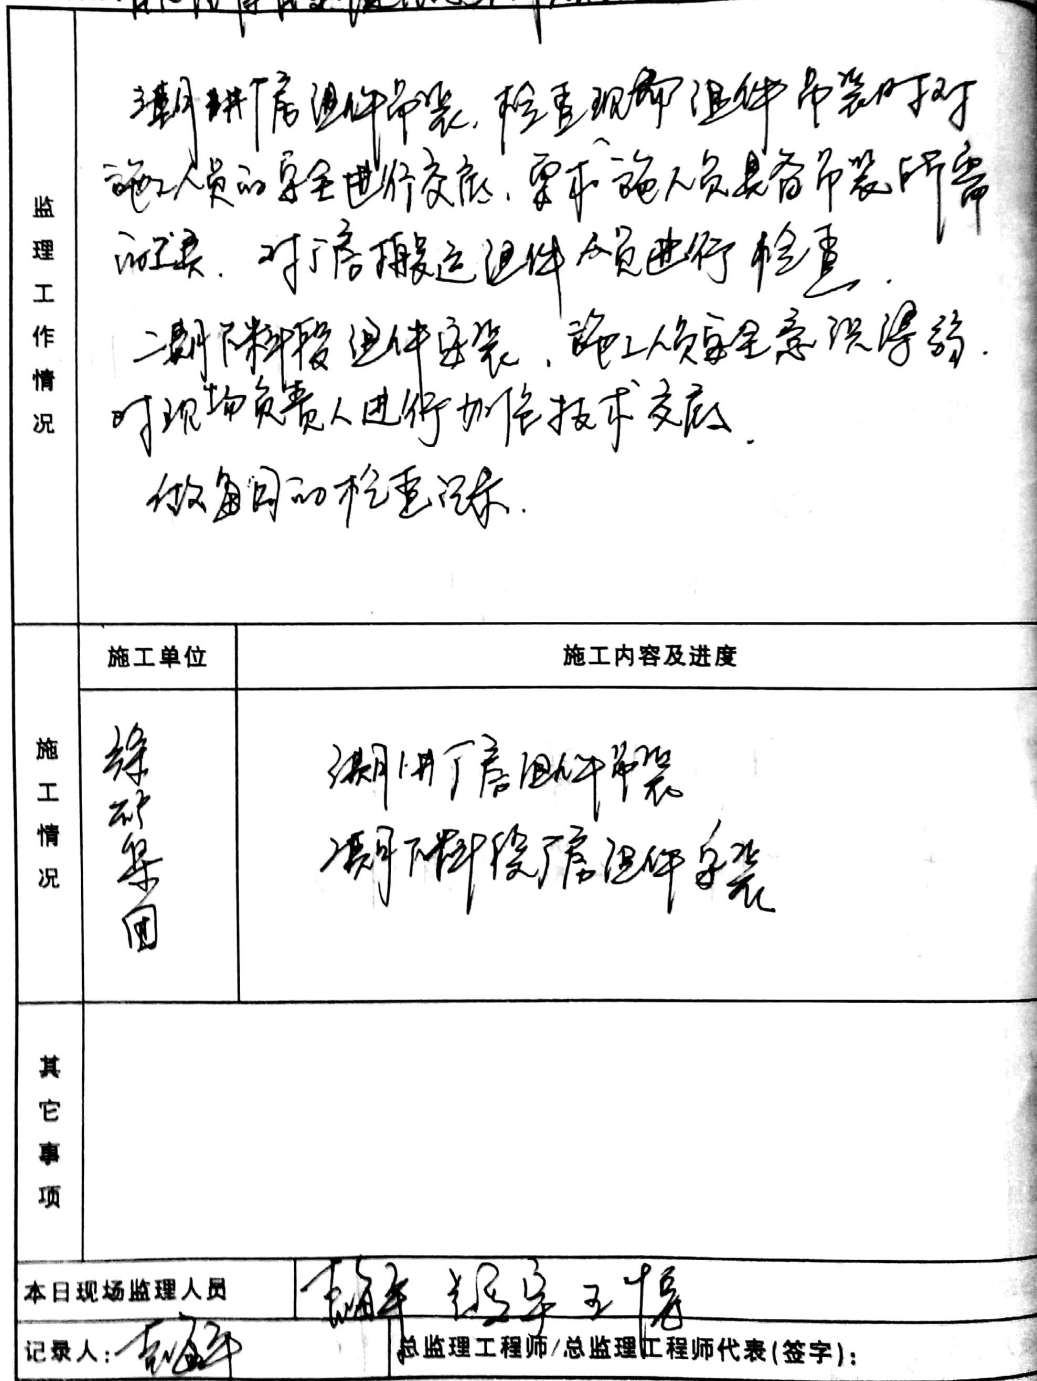 监理工作情况
期 厂房组件吊装，检查现场组件吊装时对
施工人员的安全进行交底，要求施工人员具备吊装所需
的 ，对厂房搬运组件人员进行检查．
二期下料段组件安装，施工人员安全意识薄弱．
对现场负责人进行加强技术交底．
做 的检查记录．
施工单位
施工内容及进度
施工情况
徐矿集团
期 厂房组件吊装
二期下料段厂房组件安装
其它事项
本日现场监理人员
记录人：
总监理工程师/总监理工程师代表(签字)：